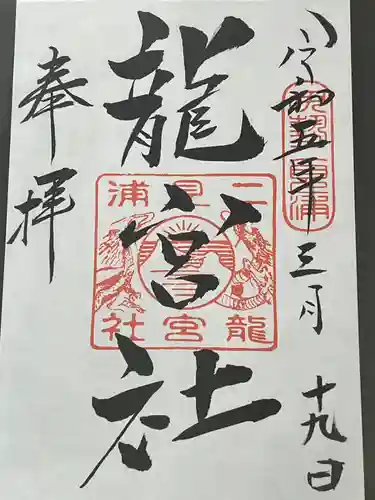 令和五年三月十九日
龍宮社
奉拝
二見浦
龍宮社